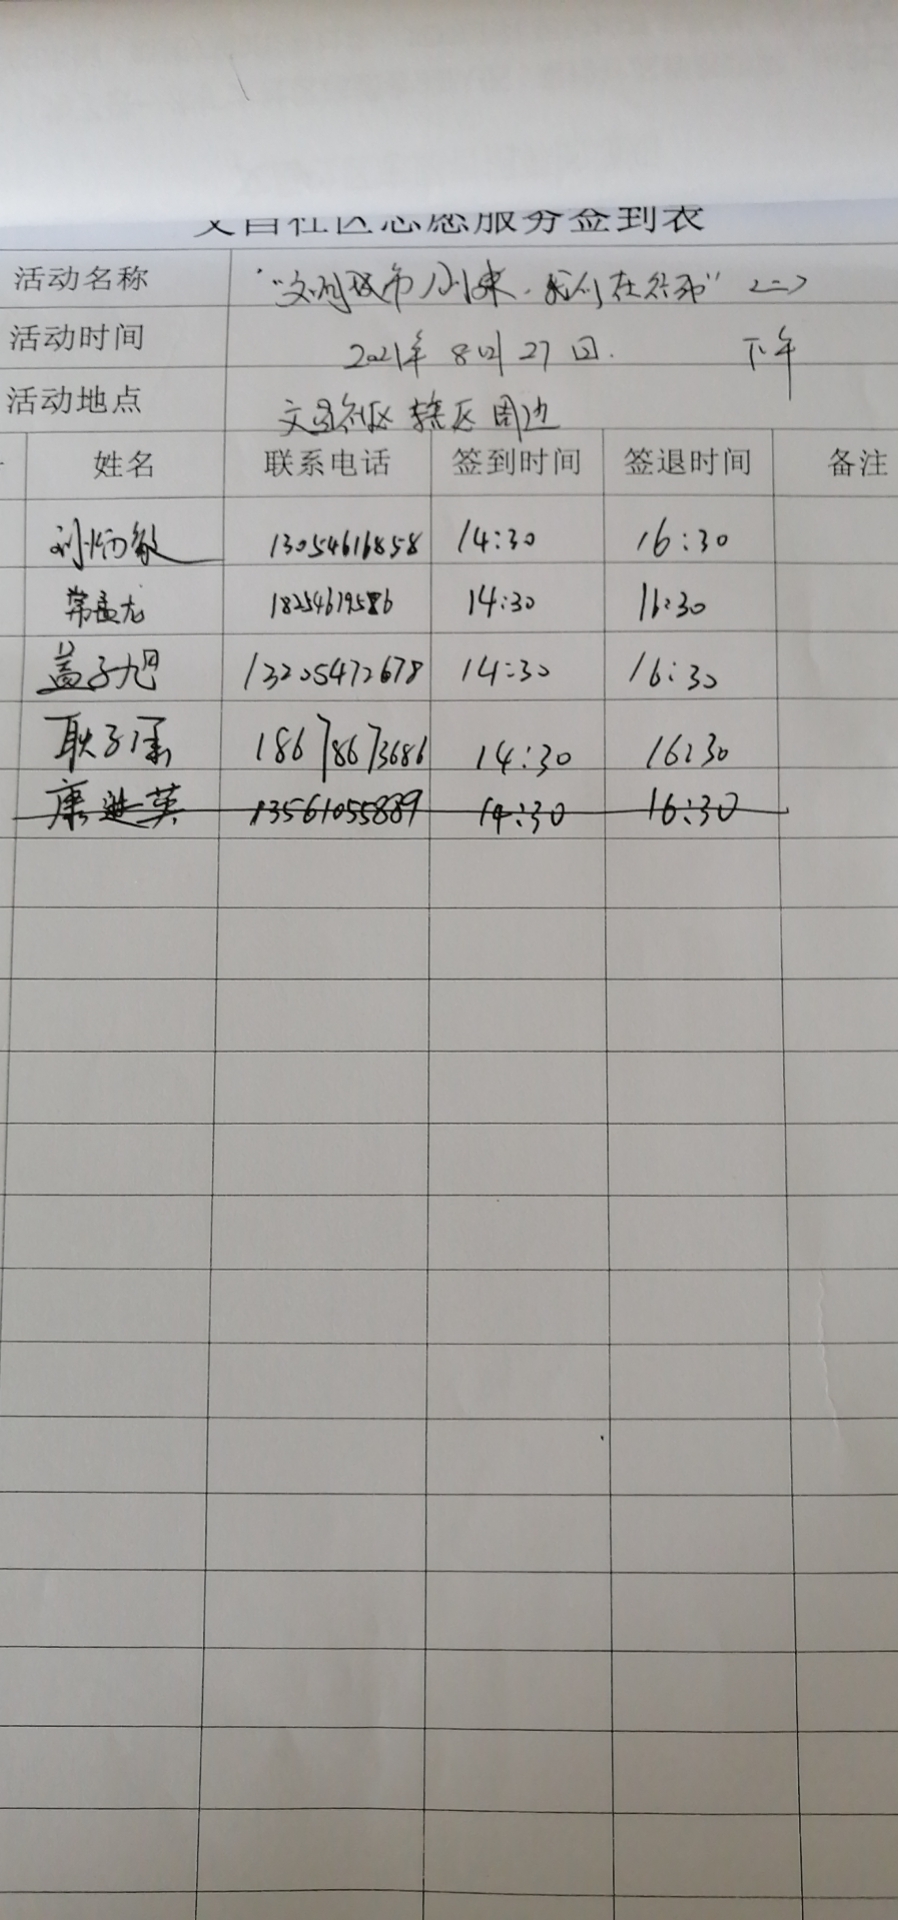 文昌社区志愿服务签到表
活动名称 "文明城市创建，我们在行动"（二）
活动时间 2021年8月27日. 下午
活动地点 文昌社区辖区周边
姓名 联系电话 签到时间 签退时间 备注
刘炳敏 13054616858 14:30 16:30
常孟龙 18254619586 14:30 16:30
盖子旭 13205472678 14:30 16:30
耿子 18678673686 14:30 16:30
康进英 13561055889 14:30 16:30